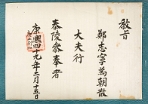 教旨
鄭志宗爲朝散
大夫行
泰陵參奉者
康熙四十九年三月十五日